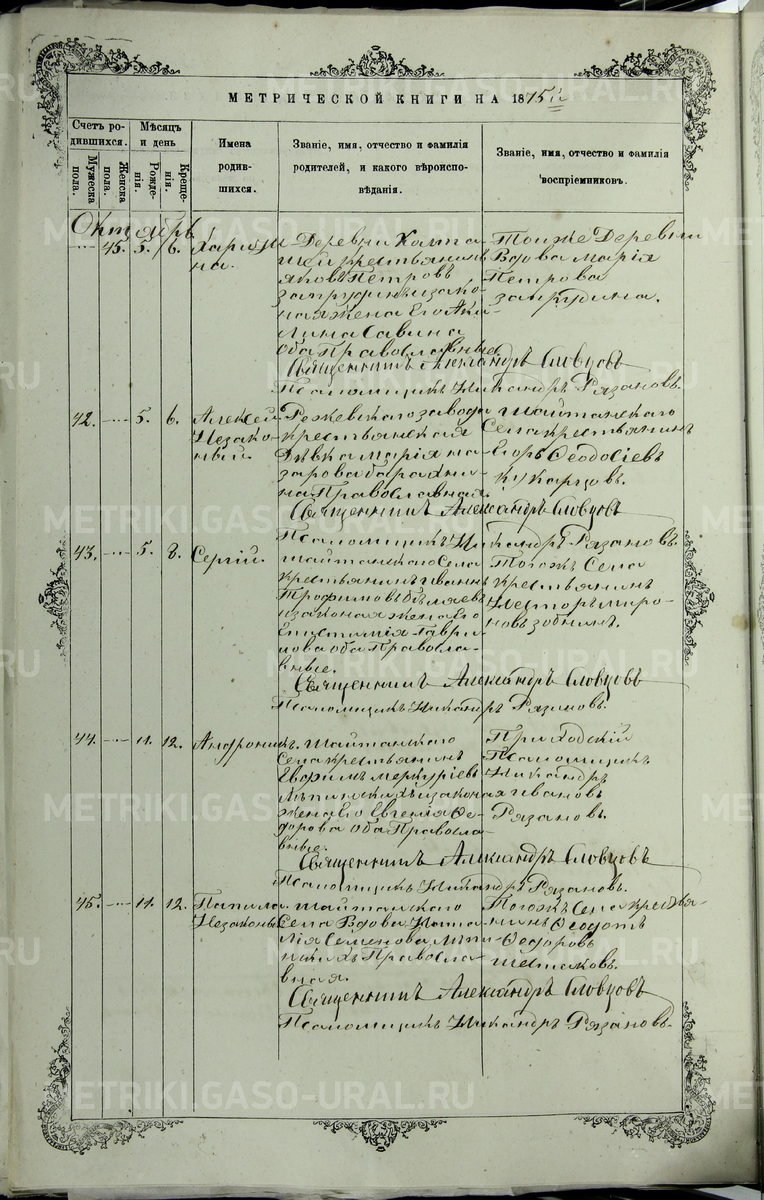 МЕТРИЧЕСКОЙ КНИГИ НА 1875й
Счетъ ро-
дившихся.
Мужеска
пола.
Женска
пола.
Мѣсяцъ
и день
Рожде-
нія.
Креще-
нія.
Имена
родив-
шихся.
Званіе, имя, отчество и фамилія
родителей, и какого вѣроиспо-
вѣданія.
Званіе, имя, отчество и фамилія
воспріемниковъ.
Октябрь
45. 5. 6. Харити-
на.
Деревни Калта-
шей крестьянинъ
Яковъ Петровъ
Запрудинъ и зако-
ная жена его Аку-
лина Савина
оба Православные.
Тоиже Деревни
Вдова Марія
Петрова
Запрудина.
Священникъ Александръ Словцовъ
Псаломщикъ Никандръ Рязановъ.
42. 5. 6. Алексей
Незако-
ный.
Режевскаго завода
крестьянская
Дѣвка Марія На-
зарова
на Православная.
Шайтанскаго
Села крестьянинъ
Егоръ Ѳеодосіевъ
Кукарцовъ.
Священникъ Александръ Словцовъ
Псаломщикъ Никандръ Рязановъ.
43. 5. 8. Сергій.
Шайтанскаго Села
крестьянинъ Иванъ
Трофимовъ Бѣляевъ
и законая жена его
Евтимія Гаври-
лова оба Правосла-
вные.
Тогожъ Села
крестьянинъ
Несторъ Миро-
новъ Зобнинъ.
Священникъ Александръ Словцовъ
Псаломщикъ Никандръ Рязановъ.
44. 11. 12. Андроникъ.
Шайтанскаго
Села крестьянинъ
Евфимъ Меркуріевъ
и законая
жена его Евгенія Ѳе-
дорова оба Правосла-
вные.
Приходскій
Псаломщикъ
Никандръ
Ивановъ
Рязановъ.
Священникъ Александръ Словцовъ
Псаломщикъ Никандръ Рязановъ.
45. 11. 12.
Незаконый
Шайтанскаго
Села Вдова Ната-
лія Семенова
Правосла-
вная.
Тогожъ Села крестья-
нинъ Ѳеодотъ
Ѳеодоровъ
Шестаковъ.
Священникъ Александръ Словцовъ
Псаломщикъ Никандръ Рязановъ.
METRIKI.GASO-URAL.RU